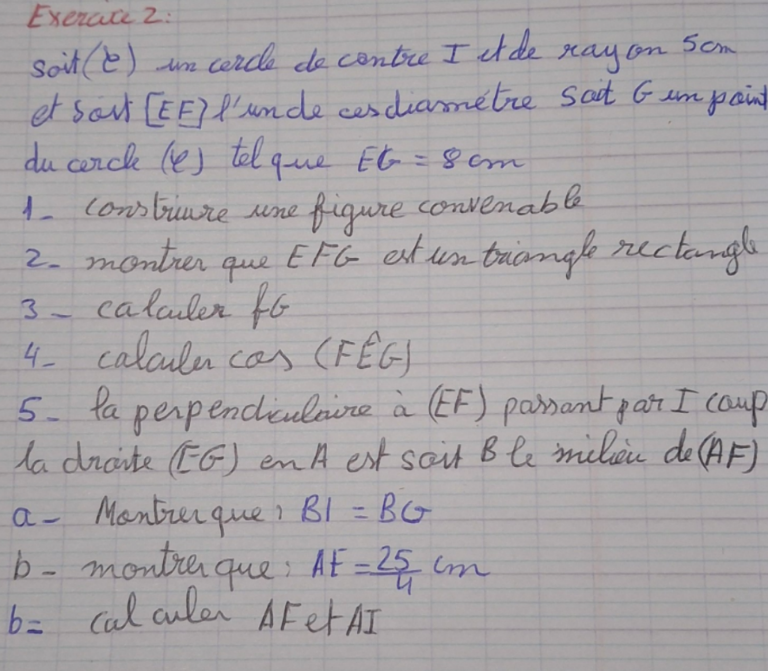 Exercice 2:
soit (C) un cercle de centre I et de rayon 5cm
et soit [EF] l'un de ces diamétre soit G un point
du cercle (C) tel que EG = 8 cm
1- construire une figure convenable
2- montrer que EFG est un triangle rectangle
3- calculer FG
4- calculer cos (FÊG)
5- la perpendiculaire à (EF) passant par I coup
la droite (EG) en A est soit B le milieu de (AF)
a- Montrer que: BI = BG
b- montrer que: AE = 25/4 cm
b= calculer AF et AI